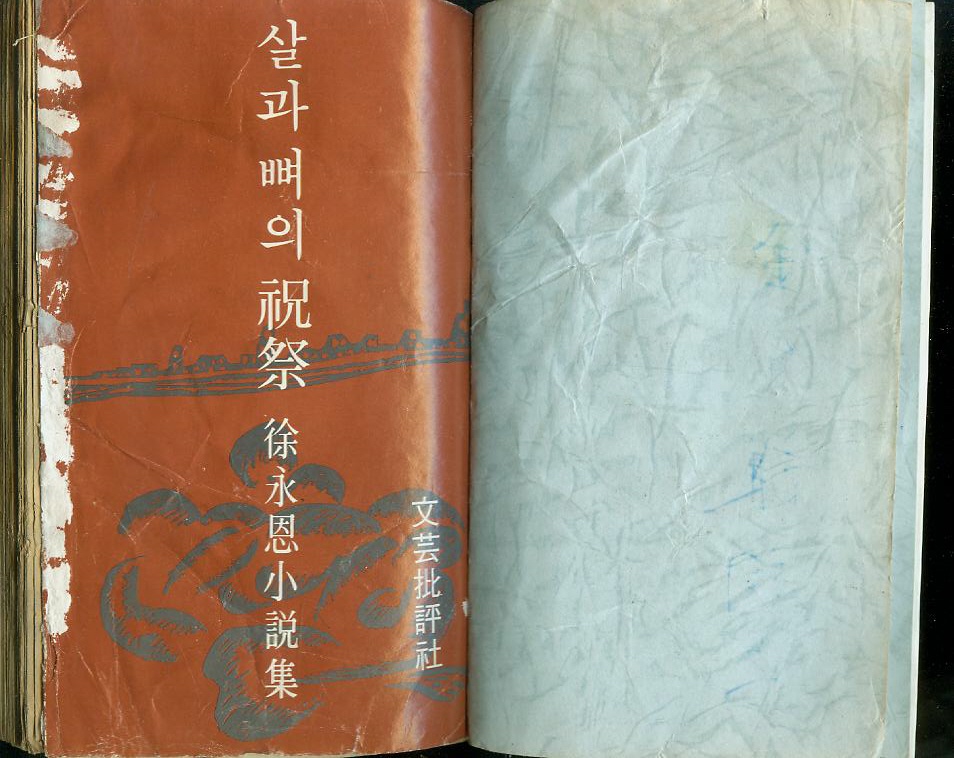 살과 뼈의 祝祭
徐永恩小説集
文芸批評社